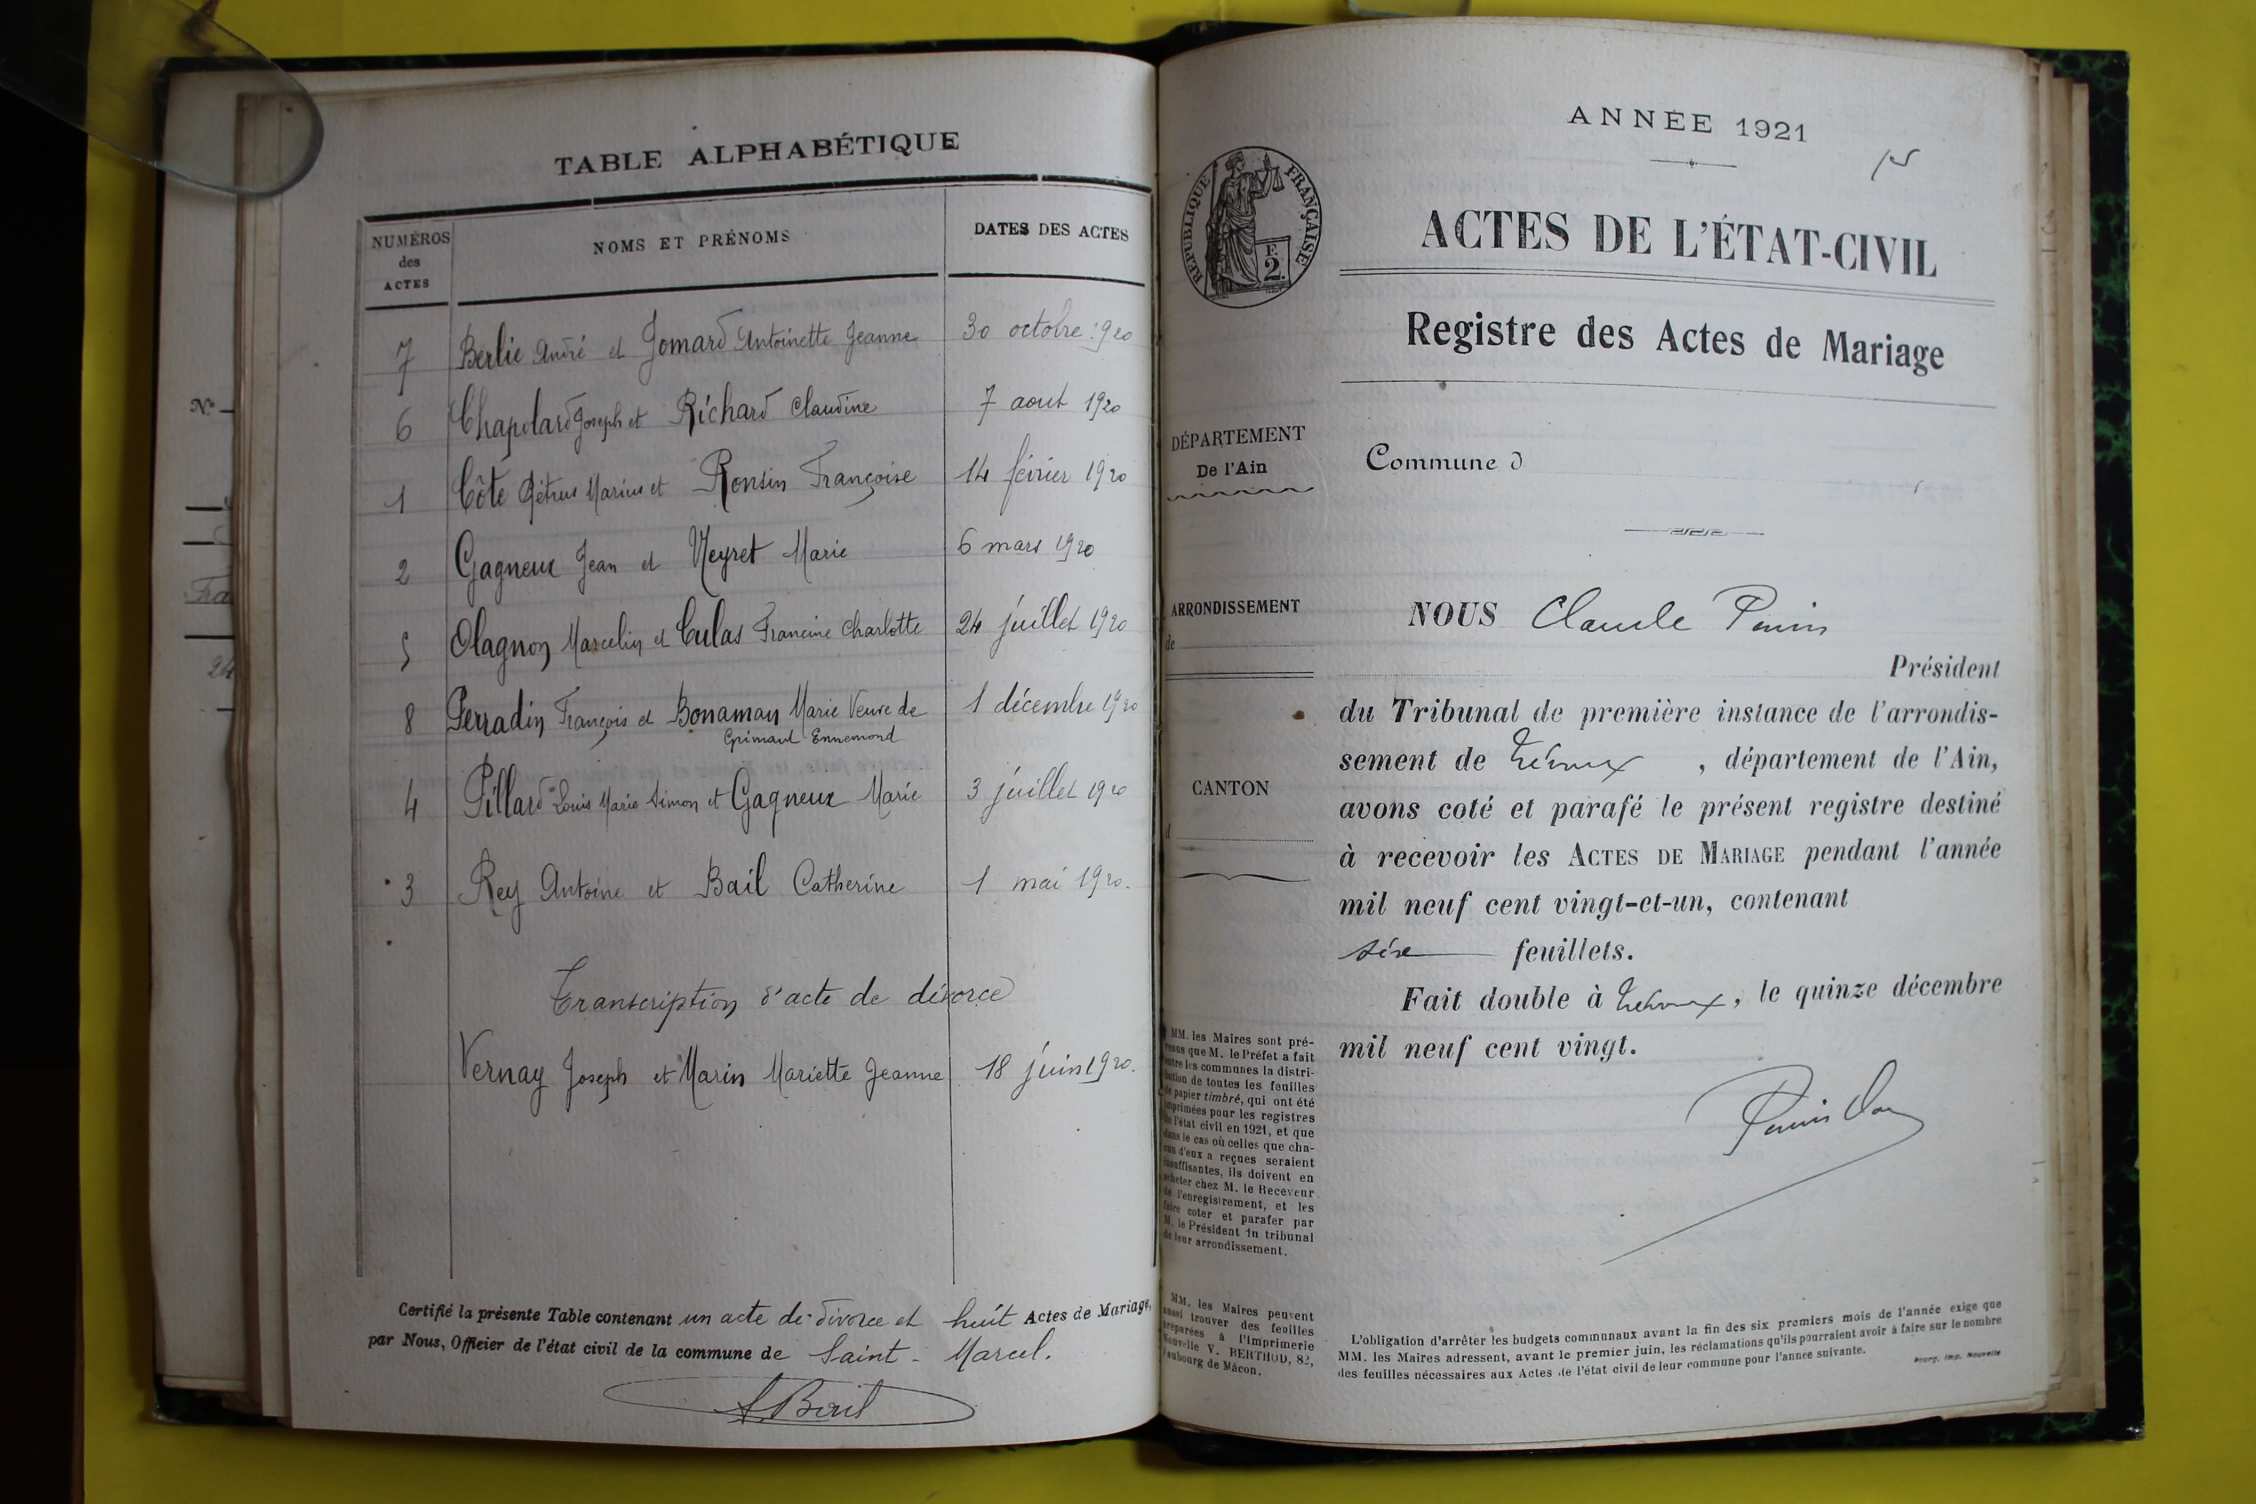 TABLE ALPHABÉTIQUE
NUMÉROS des ACTES
NOMS ET PRÉNOMS
DATES DES ACTES
7 Berlie André et Jomard Antoinette Jeanne 30 octobre 1920
6 Chapolard Joseph et Richard Claudine 7 aout 1920
1 Côte Pétrus Marius et Ronsin Françoise 14 février 1920
2 Gagneux Jean et Neyret Marie 6 mars 1920
5 Olagnon Marcelin et Culas Francine Charlotte 24 juillet 1920
8 Perradin François et Bonaman Marie Veuve de 1 décembre 1920
Grimaud Ennemond
4 Pillard Louis Marie Simon et Gagneux Marie 3 juillet 1920
3 Rey Antoine et Bail Catherine 1 mai 1920.
Transcription d'acte de divorce
Vernay Joseph et Marin Mariette Jeanne 18 juin 1920.
Certifié la présente Table contenant un acte de divorce et huit Actes de Mariage,
par Nous, Officier de l'état civil de la commune de Saint-Marcel.
N°
24
ANNÉE 1921
RÉPUBLIQUE FRANÇAISE
E
2
ACTES DE L'ÉTAT-CIVIL
Registre des Actes de Mariage
DÉPARTEMENT
De l'Ain
Commune d
ARRONDISSEMENT
de
CANTON
d
NOUS Claude Perrin
Président
du Tribunal de première instance de l'arrondis-
sement de Trévoux, département de l'Ain,
avons coté et parafé le présent registre destiné
à recevoir les ACTES DE MARIAGE pendant l'année
mil neuf cent vingt-et-un, contenant
six feuillets.
Fait double à Trévoux, le quinze décembre
mil neuf cent vingt.
MM. les Maires sont pré-
venus que M. le Préfet a fait
entre les communes la distri-
bution de toutes les feuilles
de papier timbré, qui ont été
imprimées pour les registres
de l'état civil en 1921, et que
dans le cas où celles que cha-
cun d'eux a reçues seraient
insuffisantes, ils doivent en
acheter chez M. le Receveur
de l'enregistrement, et les
faire coter et parafer par
M. le Président du tribunal
de leur arrondissement.
MM. les Maires peuvent
aussi trouver des feuilles
préparées à l'Imprimerie
Nouvelle V. BERTHOD, 82,
faubourg de Mâcon.
L'obligation d'arrêter les budgets communaux avant la fin des six premiers mois de l'année exige que
MM. les Maires adressent, avant le premier juin, les réclamations qu'ils pourraient avoir à faire sur le nombre
des feuilles nécessaires aux Actes de l'état civil de leur commune pour l'année suivante.
Bourg, Imp. Nouvelle